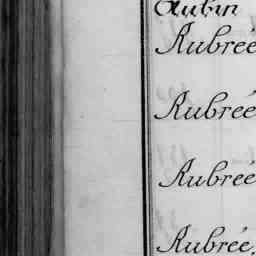 Aubin
Aubrée
Aubrée
Aubrée
Aubrée.